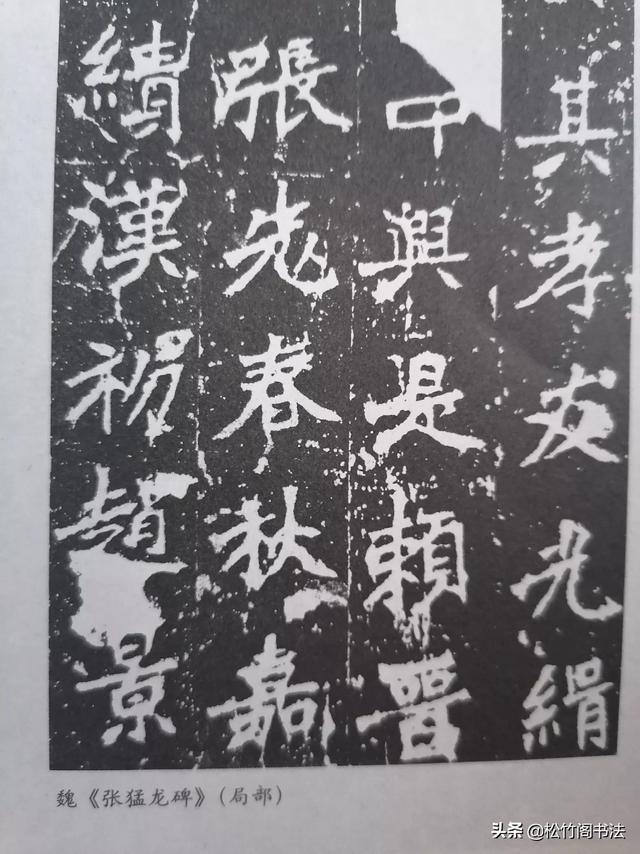 其孝友光緝
中興是賴晉
張老春秋嘉
績漢初趙景
魏《张猛龙碑》(局部)
头条 @松竹阁书法